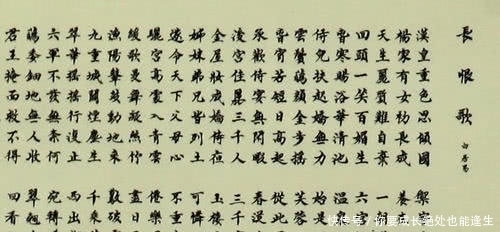 長恨歌
白居易
漢皇重色思傾國
楊家有女初長成 養
天生麗質難自棄 一
回頭一笑百媚生 六
春寒賜浴華清池 溫
侍兒扶起嬌無力 始是
雲鬢花顏金步搖 芙蓉
春宵苦短日高起 從此
承歡侍宴無閒暇 春從
宮佳麗三千人 三千
金屋妝成嬌侍夜 玉樓
姊妹弟兄皆列土 可憐
遂令天下父母心 不重
驪宮高處入青雲 仙樂
緩歌慢舞凝絲竹 盡日
漁陽鼙鼓動地來 驚破
九重城闕煙塵生 千乘
翠華搖搖行復止 西出
六軍不發無奈何 宛轉
花鈿委地無人收 翠翹
君王掩面救不得 回看
快传号/你要成长绝处也能逢生